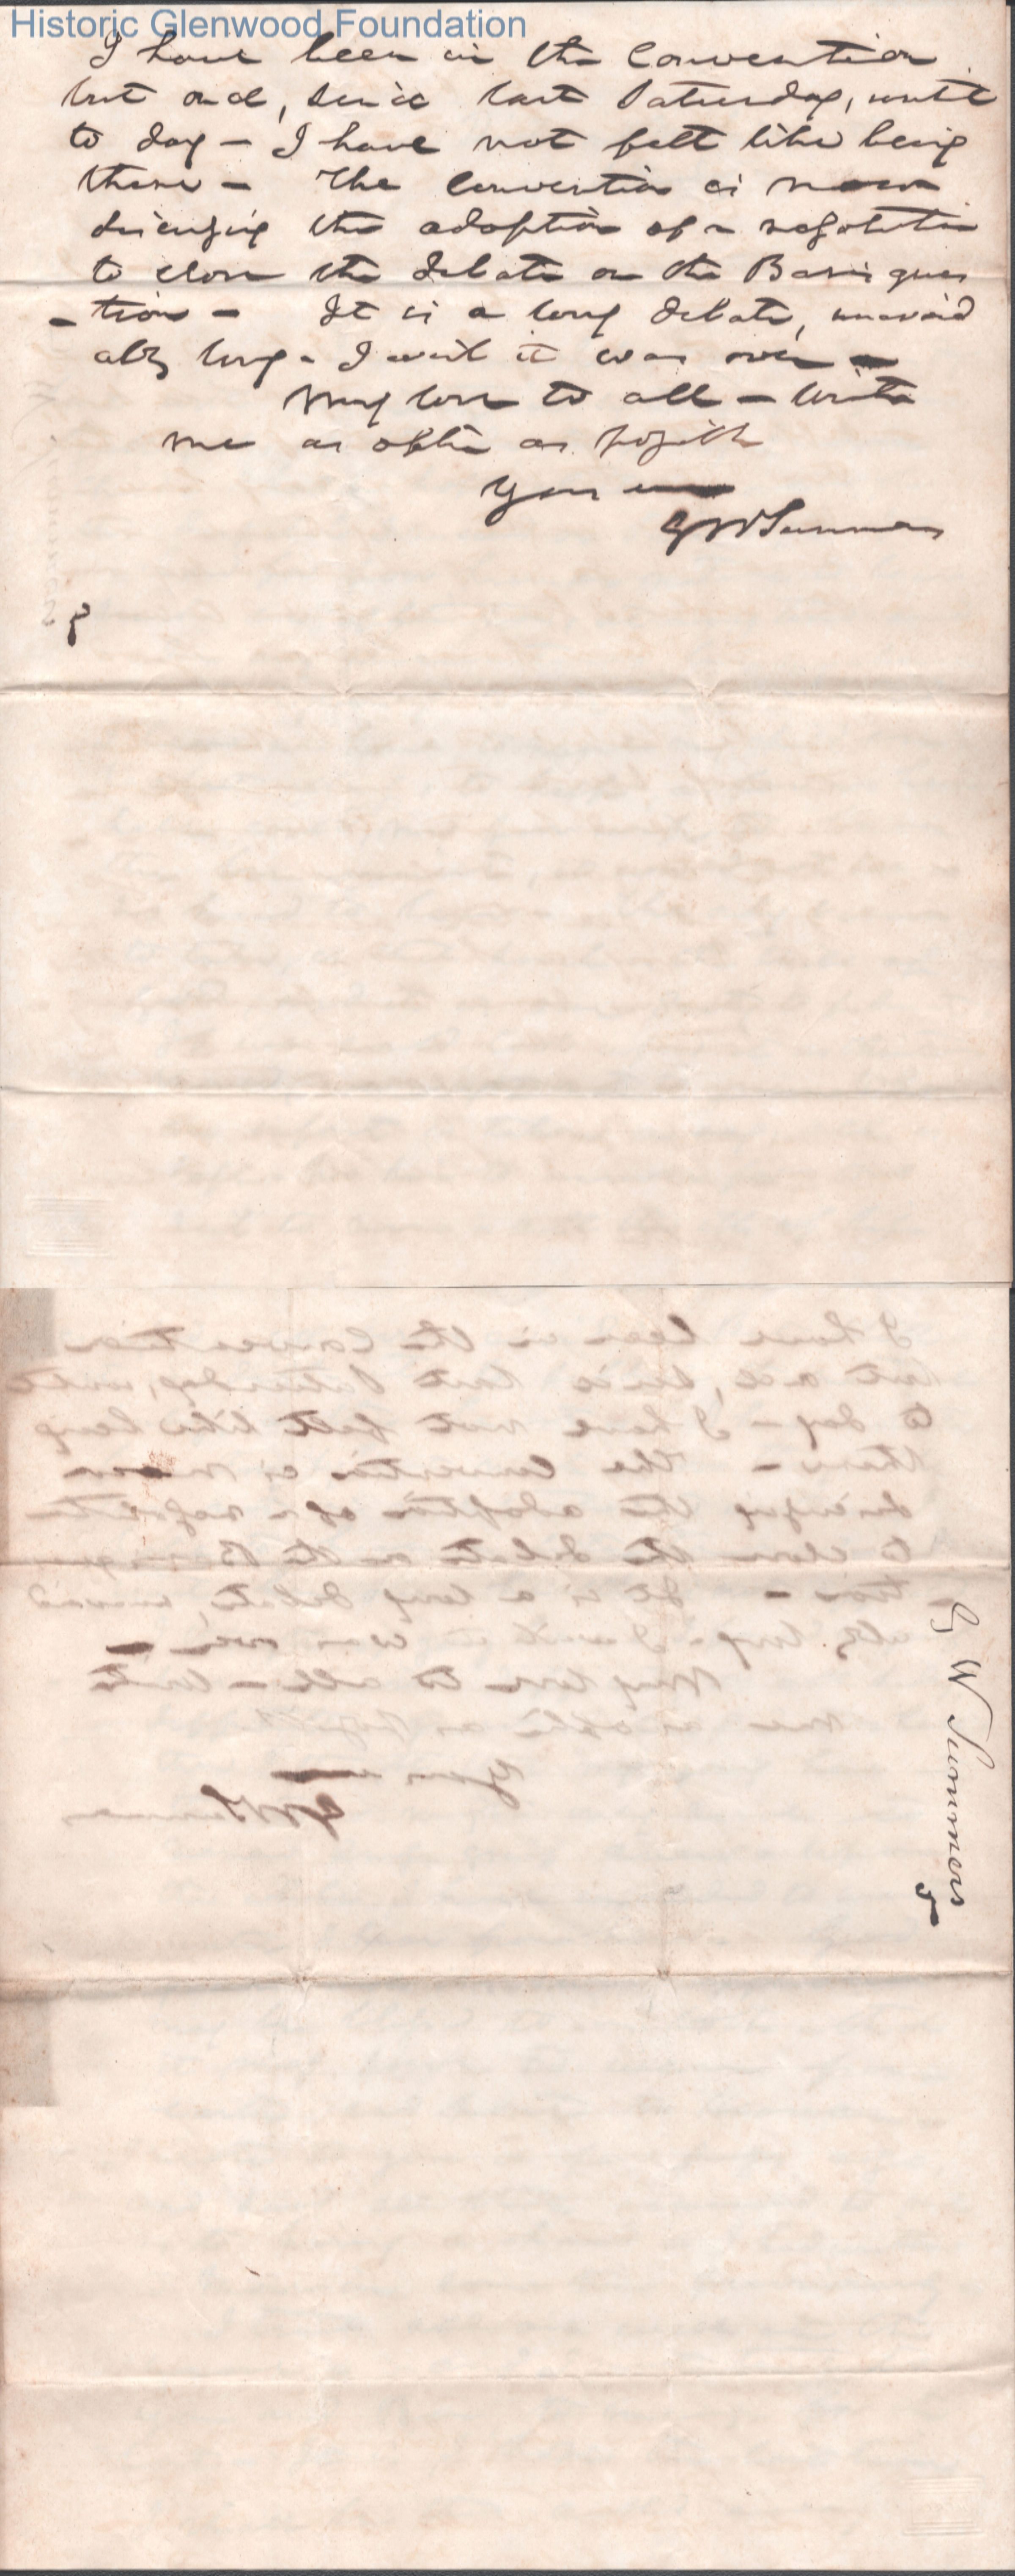 Historic Glenwood Foundation
I have been in the Convention
but once, since last Saturday, until
to day — I have not felt like being
there — The Convention is now
discussing the adoption of a resolution
to close the debate on the Basis ques
-tion — It is a long debate, unavoid
ably long — I wish it was over —
My love to all — Write
me as often as possible
Yours
GW Summers
G W Summers